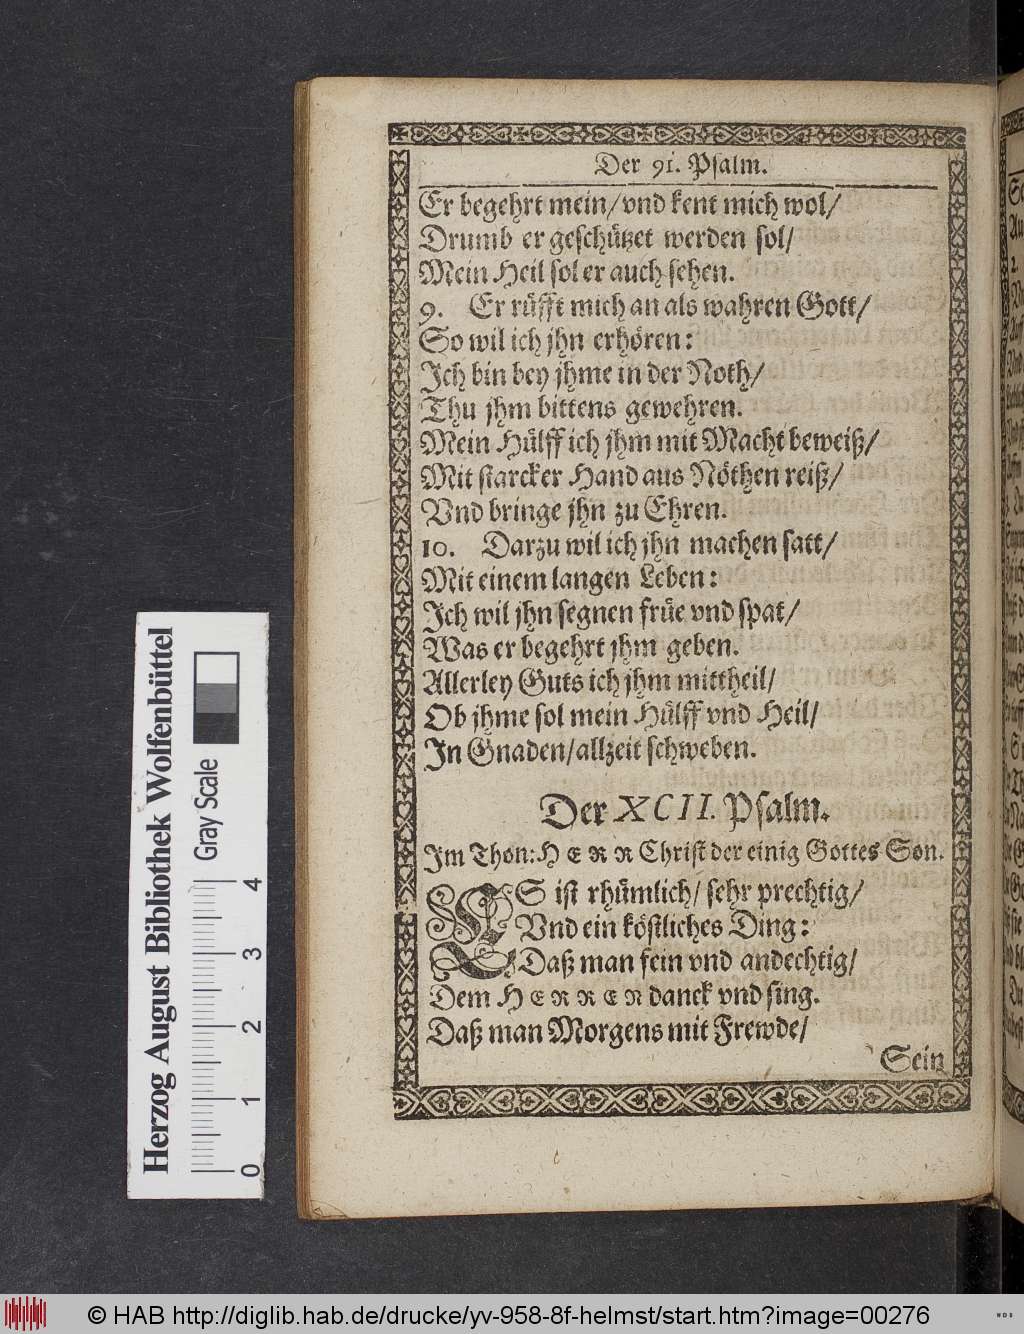 Der 91. Psalm.
Er begehrt mein/ vnd kent mich wol/
Drumb er geschützet werden sol/
Mein Heil sol er auch sehen.
9. Er rüfft mich an als wahren Gott/
So wil ich jhn erhören:
Ich bin bey jhme in der Noth/
Thu jhm bittens gewehren.
Mein Hülff ich jhm mit Macht beweiß/
Mit starcker Hand aus Nöthen reiß/
Vnd bringe jhn zu Ehren.
10. Darzu wil ich jhn machen satt/
Mit einem langen Leben:
Ich wil jhn segnen früe vnd spat/
Was er begehrt jhm geben.
Allerley Guts ich jhm mittheil/
Ob jhme sol mein Hülff vnd Heil/
In Gnaden/ allzeit schweben.
Der XCII. Psalm.
Im Thon: HERR Christ der einig Gottes Son.
ES ist rhümlich/ sehr prechtig/
Vnd ein köstliches Ding:
Daß man fein vnd andechtig/
Dem HERREN danck vnd sing.
Daß man Morgens mit Frewde/
Sein
Herzog August Bibliothek Wolfenbüttel
Gray Scale
0 1 2 3 4
© HAB http://diglib.hab.de/drucke/yv-958-8f-helmst/start.htm?image=00276